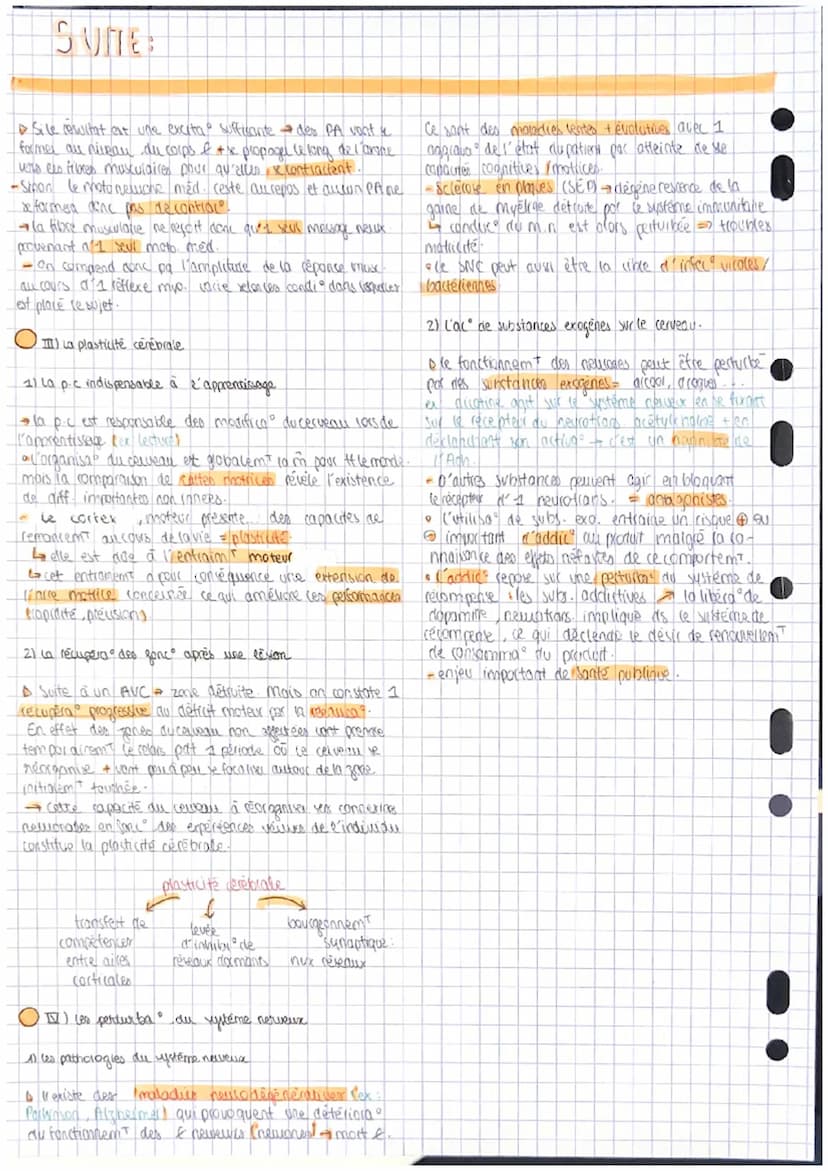 SUITE:
▷ Si le résultat est une excita° suffisante → des PA vont se
former au niveau du corps ¢ + se propage le long de l'axone
vers les fibres musculaires pour qu'elles se contractent.
- Sinon le motoneurone méd. reste au repos et aucun PA ne
se formera donc pas de contrac°.
→ la fibre musculaire ne reçoit donc qu'1 seul message nerveux
provenant d'1 seul moto. méd.
- On comprend donc pq l'amplitude de la réponse musc.
au cours d'1 réflexe myo. varie selon les condi° dans lesquelles
est placé le sujet.
III) La plasticité cérébrale
1) La p.c indispensable à l'apprentissage
→ la p.c est responsable des modifica° du cerveau lors de
l'apprentissage (ex lecture)
• l'organisa° du cerveau est globalemT la m̂ pour tt le monde.
mais la comparaison de cartes motrices révèle l'existence
de diff. importantes non innées.
- Le cortex moteur présente des capacités de
remaniemT au cours de la vie = plasticité
↳ elle est due à l'entrainT moteur
↳ cet entrainemT a pour conséquence une extension de
l'aire motrice concernée ce qui améliore les performances
(rapidité, précision)
2) La récupéra° des fonc° après une lésion
▷ Suite à un AVC → zone détruite. Mais on constate 1
récupéra° progressive du déficit moteur par la rééduca°.
En effet des zones du cerveau non affectées vont prendre
temporairemT le relais pdt 1 période où le cerveau se
réorganise + vont peu à peu se focaliser autour de la zone
initialemT touchée.
→ Cette capacité du cerveau à réorganiser ses connexions
neuronales en fonc° des expériences vécues de l'individu
constitue la plasticité cérébrale.
plasticité cérébrale
transfert de
compétences
entre aires
corticales
levée
d'inhibi° de
réseaux dormants
bourgeonnemT
synaptique:
nvx réseaux
IV) Les perturba° du système nerveux
1) Les pathologies du système nerveux
▷ Il existe des maladies neurodégénératives (ex:
Parkinson, Alzheimer) qui provoquent une détériora°
du fonctionnemT des ¢ nerveuses (neurones) → mort ¢.
Ce sont des maladies lentes + évolutives avec 1
aggrava° de l'état du patient par atteinte de se
capacités cognitives / motrices.
- Sclérose en plaques (SEP) → dégénérescence de la
gaine de myéline détruite par le système immunitaire
↳ conduc° du m.n est alors perturbée ⇒ troubles
motricité.
• le SNC peut aussi être la cible d'infec° virales/
bactériennes
2) L'ac° de substances exogènes sur le cerveau.
▷ le fonctionnemT des neurones peut être perturbé
par des substances exogènes = alcool, drogues...
ex nicotine agit sur le système nerveux en se fixant
sur le récepteur du neurotrans. acétylcholine + en
déclenchant son activa° → c'est un agoniste de
l'Ach.
- D'autres substances peuvent agir en bloquant
le récepteur d'1 neurotrans. = antagonistes.
• l'utilisa° de subs. exo. entraine un risque ⊕ ou
⊖ important d'addic° au produit malgré la co-
nnaissance des effets néfastes de ce comportemT.
• L'addic° repose sur une perturba° du système de
récompense : les subs. addictives ↗ la libéra° de
dopamine, neurotrans. impliqué ds le système de
récompense, ce qui déclenche le désir de renouvellemT
de consomma° du produit.
- enjeu important de santé publique.